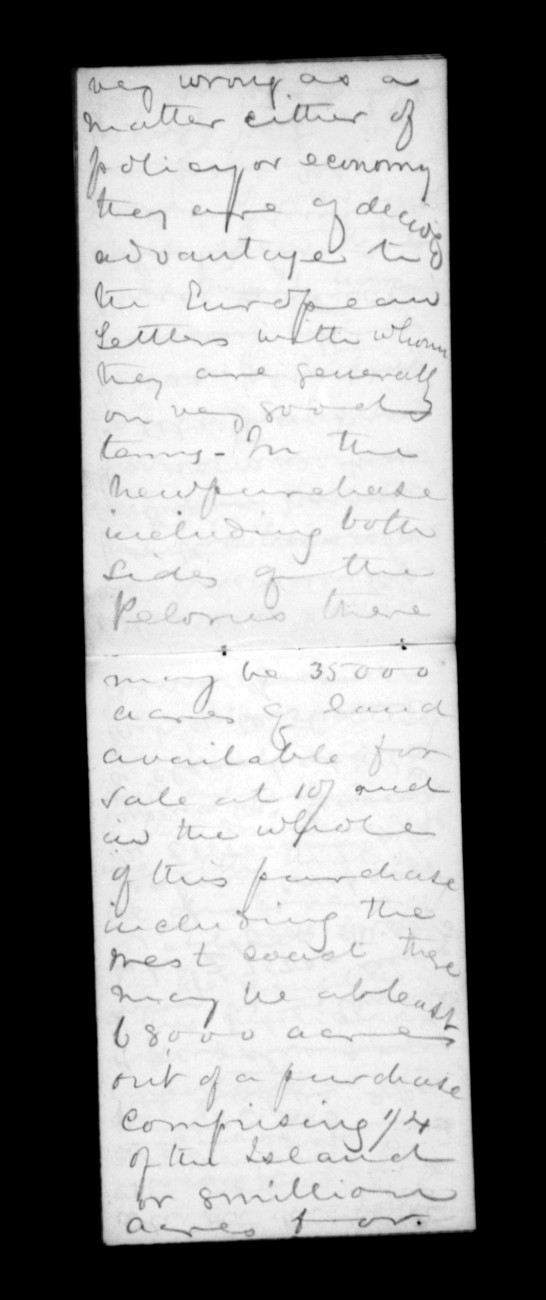 very wrong as a
matter either of
policy or economy
they are of decided
advantage to
the European
Settlers with whom
they are generally
on very good
terms - In the
new purchase
including both
sides of the
Pelorus there
may be 35000
acres of land
available for
sale at 10/ and
in the whole
of this purchase
including the
west coast there
may be at least
68000 acres
out of a purchase
comprising 1/4
of the Island
or 8 million
acres for.